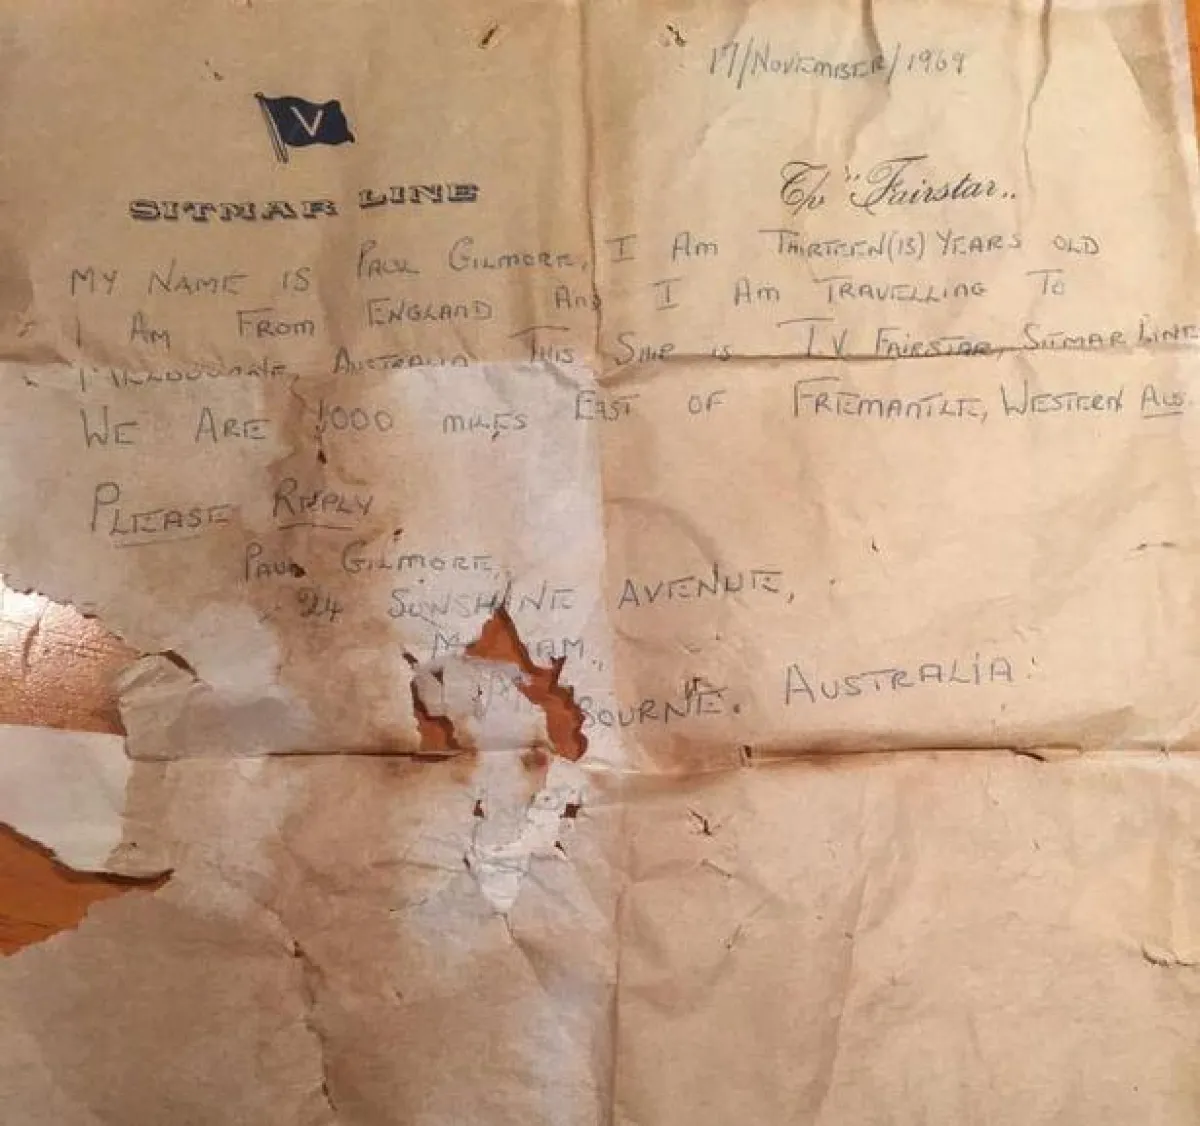 17/NOVEMBER/1969
V
SITMAR LINE
T/V "Fairstar"
MY NAME IS PAUL GILMORE, I AM THIRTEEN (13) YEARS OLD
I AM FROM ENGLAND AND I AM TRAVELLING TO
MELBOURNE, AUSTRALIA THIS SHIP IS T.V FAIRSTAR, SITMAR LINE
WE ARE 1000 MILES EAST OF FREMANTLE, WESTERN AUS.
PLEASE REPLY
PAUL GILMORE,
24 SUNSHINE AVENUE,
BOURNE. AUSTRALIA.